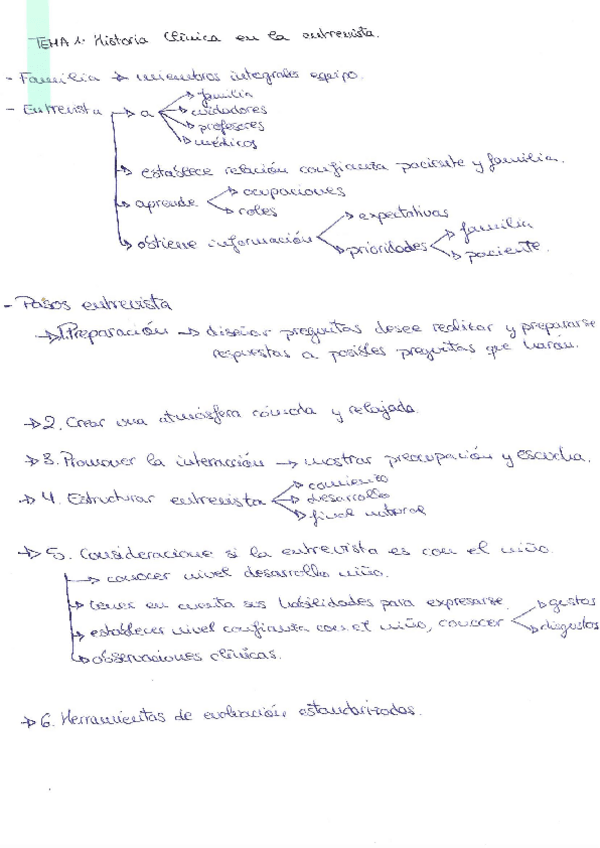 TEMA 1: Historia Clínica en la entrevista.
- Familia → miembros integrales equipo.
- Entrevista → a → familia
→ cuidadores
→ profesores
→ médicos
→ establece relación confianza paciente y familia.
→ aprende → ocupaciones
→ roles
→ obtiene información → expectativas
→ prioridades → familia
→ paciente.
- Pasos entrevista
→ 1. Preparación → diseñar preguntas desee realizar y prepararse
respuestas a posibles preguntas que harán.
→ 2. Crear una atmósfera cómoda y relajada.
→ 3. Promover la interacción → mostrar preocupación y escucha.
→ 4. Estructurar entrevista → comienzo
→ desarrollo
→ final natural
→ 5. Consideracione si la entrevista es con el niño.
→ conocer nivel desarrollo niño.
→ tener en cuenta sus habilidades para expresarse.
→ establecer nivel confianza con el niño, conocer → gustos
→ disgustos
→ observaciones clínicas.
→ 6. Herramientas de evaluación estandarizadas.